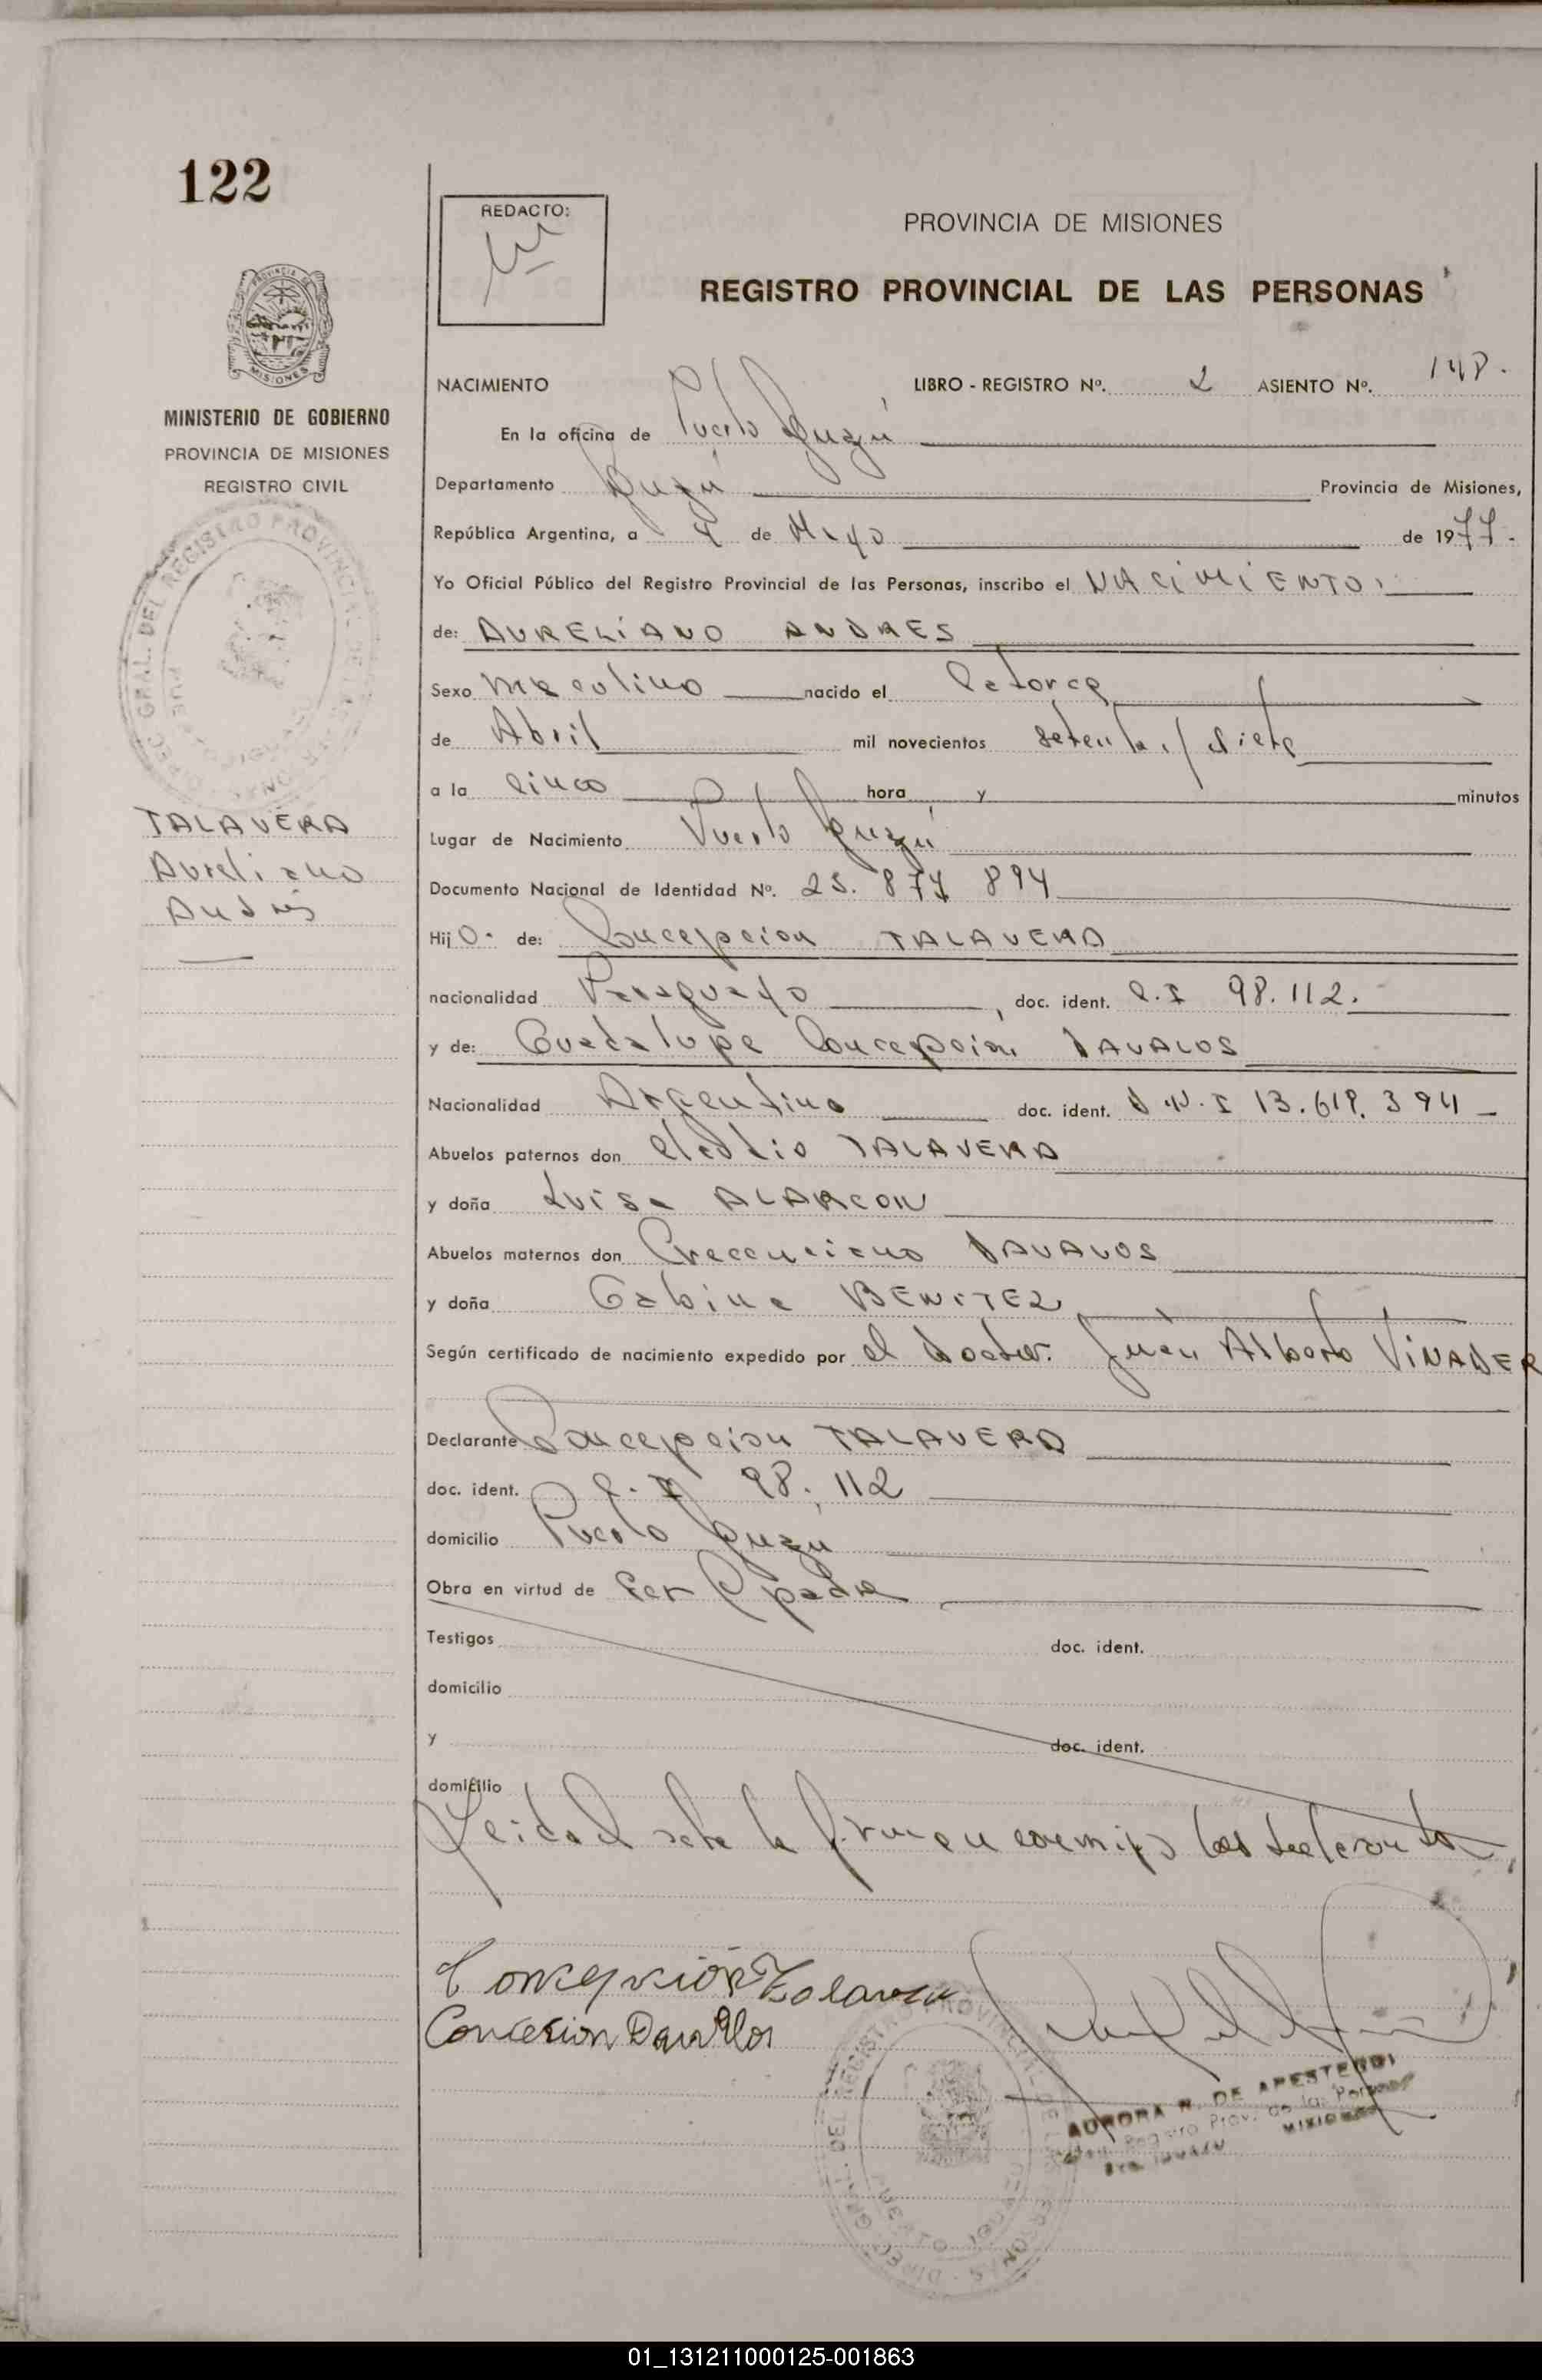 122
REDACTO:
PROVINCIA DE MISIONES
REGISTRO PROVINCIAL DE LAS PERSONAS
MISIONES
MINISTERIO DE GOBIERNO
PROVINCIA DE MISIONES
REGISTRO CIVIL
TALAVERA
Aureliano
Andrés
NACIMIENTO LIBRO - REGISTRO Nº. 2 ASIENTO Nº. 148.
En la oficina de Puerto Iguazú
Departamento Iguazú Provincia de Misiones,
República Argentina, a 4 de Mayo de 1977.
Yo Oficial Público del Registro Provincial de las Personas, inscribo el NACIMIENTO
de: AURELIANO ANDRES
Sexo Masculino nacido el Catorce
de Abril mil novecientos setenta y siete
a la cinco hora y minutos
Lugar de Nacimiento Puerto Iguazú
Documento Nacional de Identidad Nº. 25.877 894
Hijo. de: Concepcion TALAVERA
nacionalidad Paraguayo, doc. ident. C.I 98.112.
y de: Guadalupe Concepción DAVALOS
Nacionalidad Argentina doc. ident. D.N.I 13.618.394
Abuelos paternos don TALAVERA
y doña Luisa ALARCON
Abuelos maternos don Crecenciano DAVALOS
y doña Gabina BENITEZ
Según certificado de nacimiento expedido por el Doctor. Juan Alberto VINADER
Declarante Concepcion TALAVERA
doc. ident. C.I 98.112
domicilio Puerto Iguazú
Obra en virtud de ser el padre
Testigos doc. ident.
domicilio
y doc. ident.
domicilio
Leida el acta la firman conmigo los declarantes
Concepción Talavera
Concecion Davallos
AURORA R. DE APESTEGUI
Registro Prov. de las Personas
Pto. IGUAZU MISIONES
01_131211000125-001863